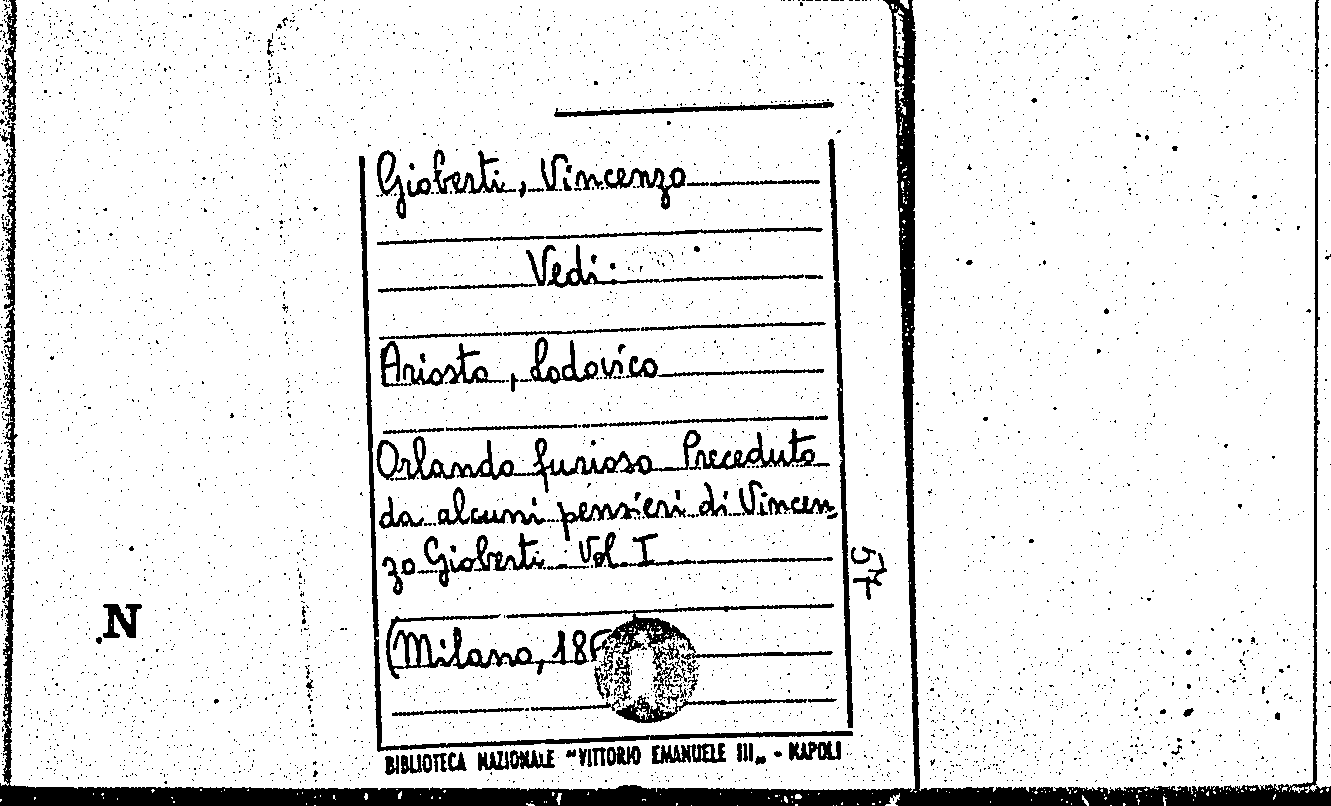 Gioberti, Vincenzo
Vedi:
Ariosto, Lodovico
Orlando furioso Preceduto
da alcuni pensieri di Vincen=
zo Gioberti - Vol. I
(Milano,
N
BIBLIOTECA NAZIONALE "VITTORIO EMANUELE III„ - NAPOLI